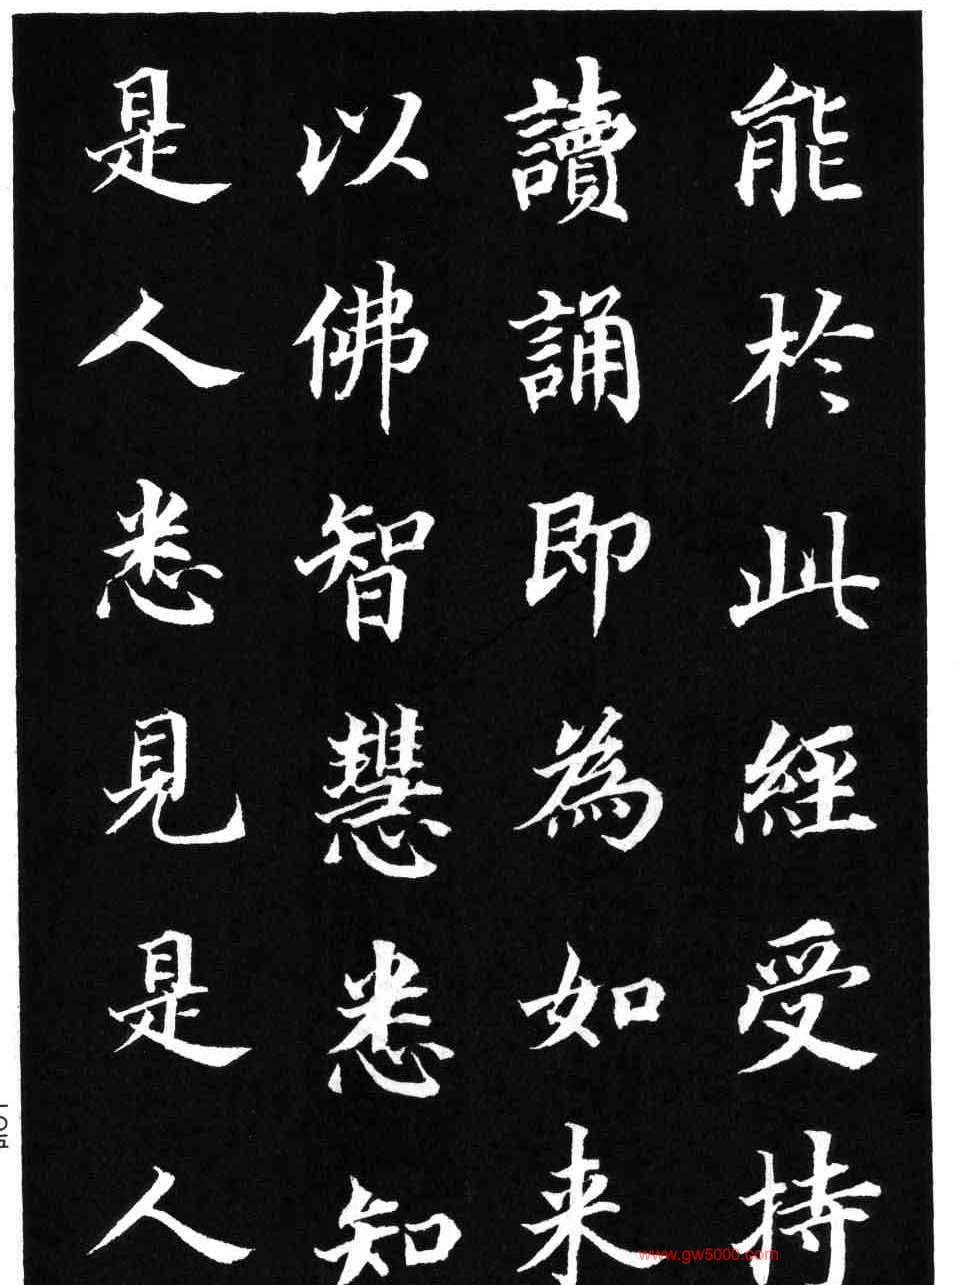 能於此經受持
讀誦即為如来
以佛智慧悉知
是人悉見是人
www.gw5000.com